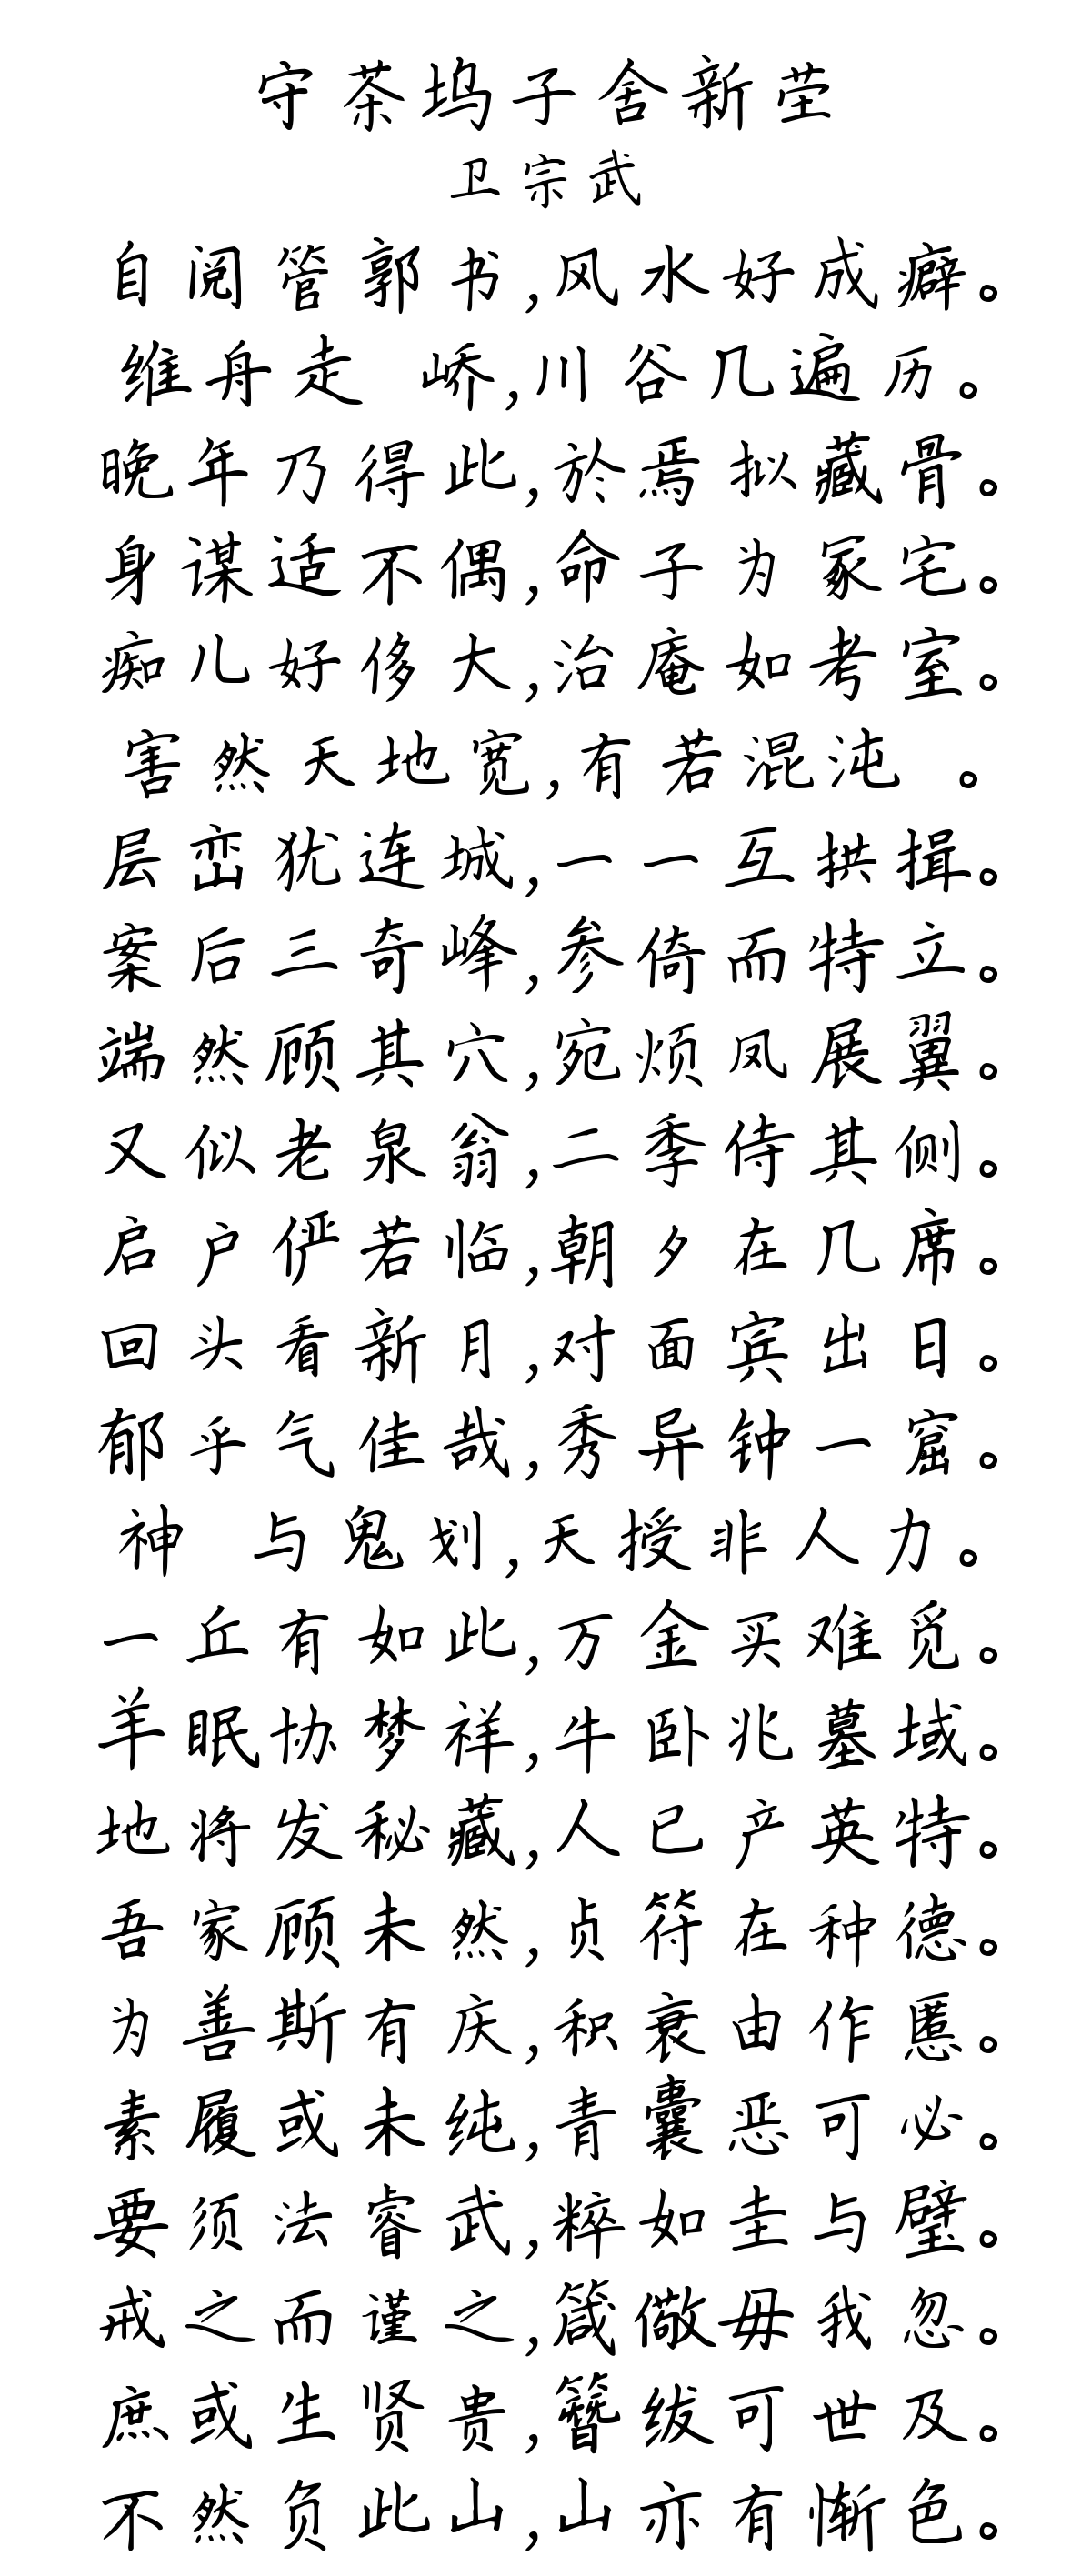 守茶坞子舍新茔
卫宗武
自阅管郭书,风水好成癖。
维舟走 峤,川谷几遍历。
晚年乃得此,於焉拟藏骨。
身谋适不偶,命子为冢宅。
痴儿好侈大,治庵如考室。
害然天地宽,有若混沌 。
层峦犹连城,一一互拱揖。
案后三奇峰,参倚而特立。
端然顾其穴,宛烦凤展翼。
又似老泉翁,二季侍其侧。
启户俨若临,朝夕在几席。
回头看新月,对面宾出日。
郁乎气佳哉,秀异钟一窟。
神 与鬼划,天授非人力。
一丘有如此,万金买难觅。
羊眠协梦祥,牛卧兆墓域。
地将发秘藏,人已产英特。
吾家顾未然,贞符在种德。
为善斯有庆,积衰由作慝。
素履或未纯,青囊恶可必。
要须法睿武,粹如圭与璧。
戒之而谨之,箴儆毋我忽。
庶或生贤贵,簪绂可世及。
不然负此山,山亦有惭色。